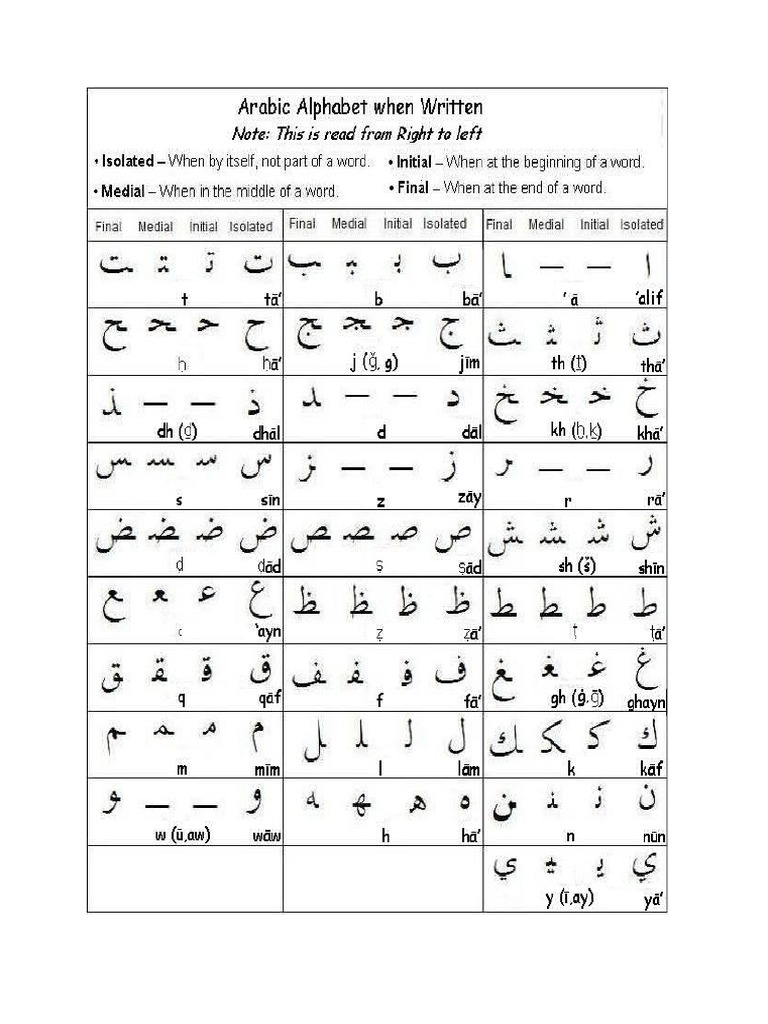 Arabic Alphabet when Written
Note: This is read from Right to left
• Isolated – When by itself, not part of a word. • Initial – When at the beginning of a word.
• Medial – When in the middle of a word. • Final – When at the end of a word.
Final Medial Initial Isolated Final Medial Initial Isolated Final Medial Initial Isolated
ـت ـتـ تـ ت ـب ـبـ بـ ب ـا — — ا
t tā’ b bā’ ’ ā ’alif
ـح ـحـ حـ ح ـج ـجـ جـ ج ـث ـثـ ثـ ث
ḥ ḥā’ j (ǧ, g) jīm th (ṯ) thā’
ـذ — — ذ ـد — — د ـخ ـخـ خـ خ
dh (ḏ) dhāl d dāl kh (ḫ,ḵ) khā’
ـس ـسـ سـ س ـز — — ز ـر — — ر
s sīn z zāy r rā’
ـض ـضـ ضـ ض ـص ـصـ صـ ص ـش ـشـ شـ ش
ḍ ḍād ṣ ṣād sh (š) shīn
ـع ـعـ عـ ع ـظ ـظـ ظـ ظ ـط ـطـ طـ ط
‘ayn ẓ ẓā’ ṭ ṭā’
ـق ـقـ قـ ق ـف ـفـ فـ ف ـغ ـغـ غـ غ
q qāf f fā’ gh (ġ,ḡ) ghayn
ـم ـمـ مـ م ـل ـلـ لـ ل ـك ـكـ كـ ك
m mīm l lām k kāf
ـو — — و ـه ـهـ هـ ه ـن ـنـ نـ ن
w (ū,aw) wāw h hā’ n nūn
ـي ـيـ يـ ي
y (ī,ay) yā’